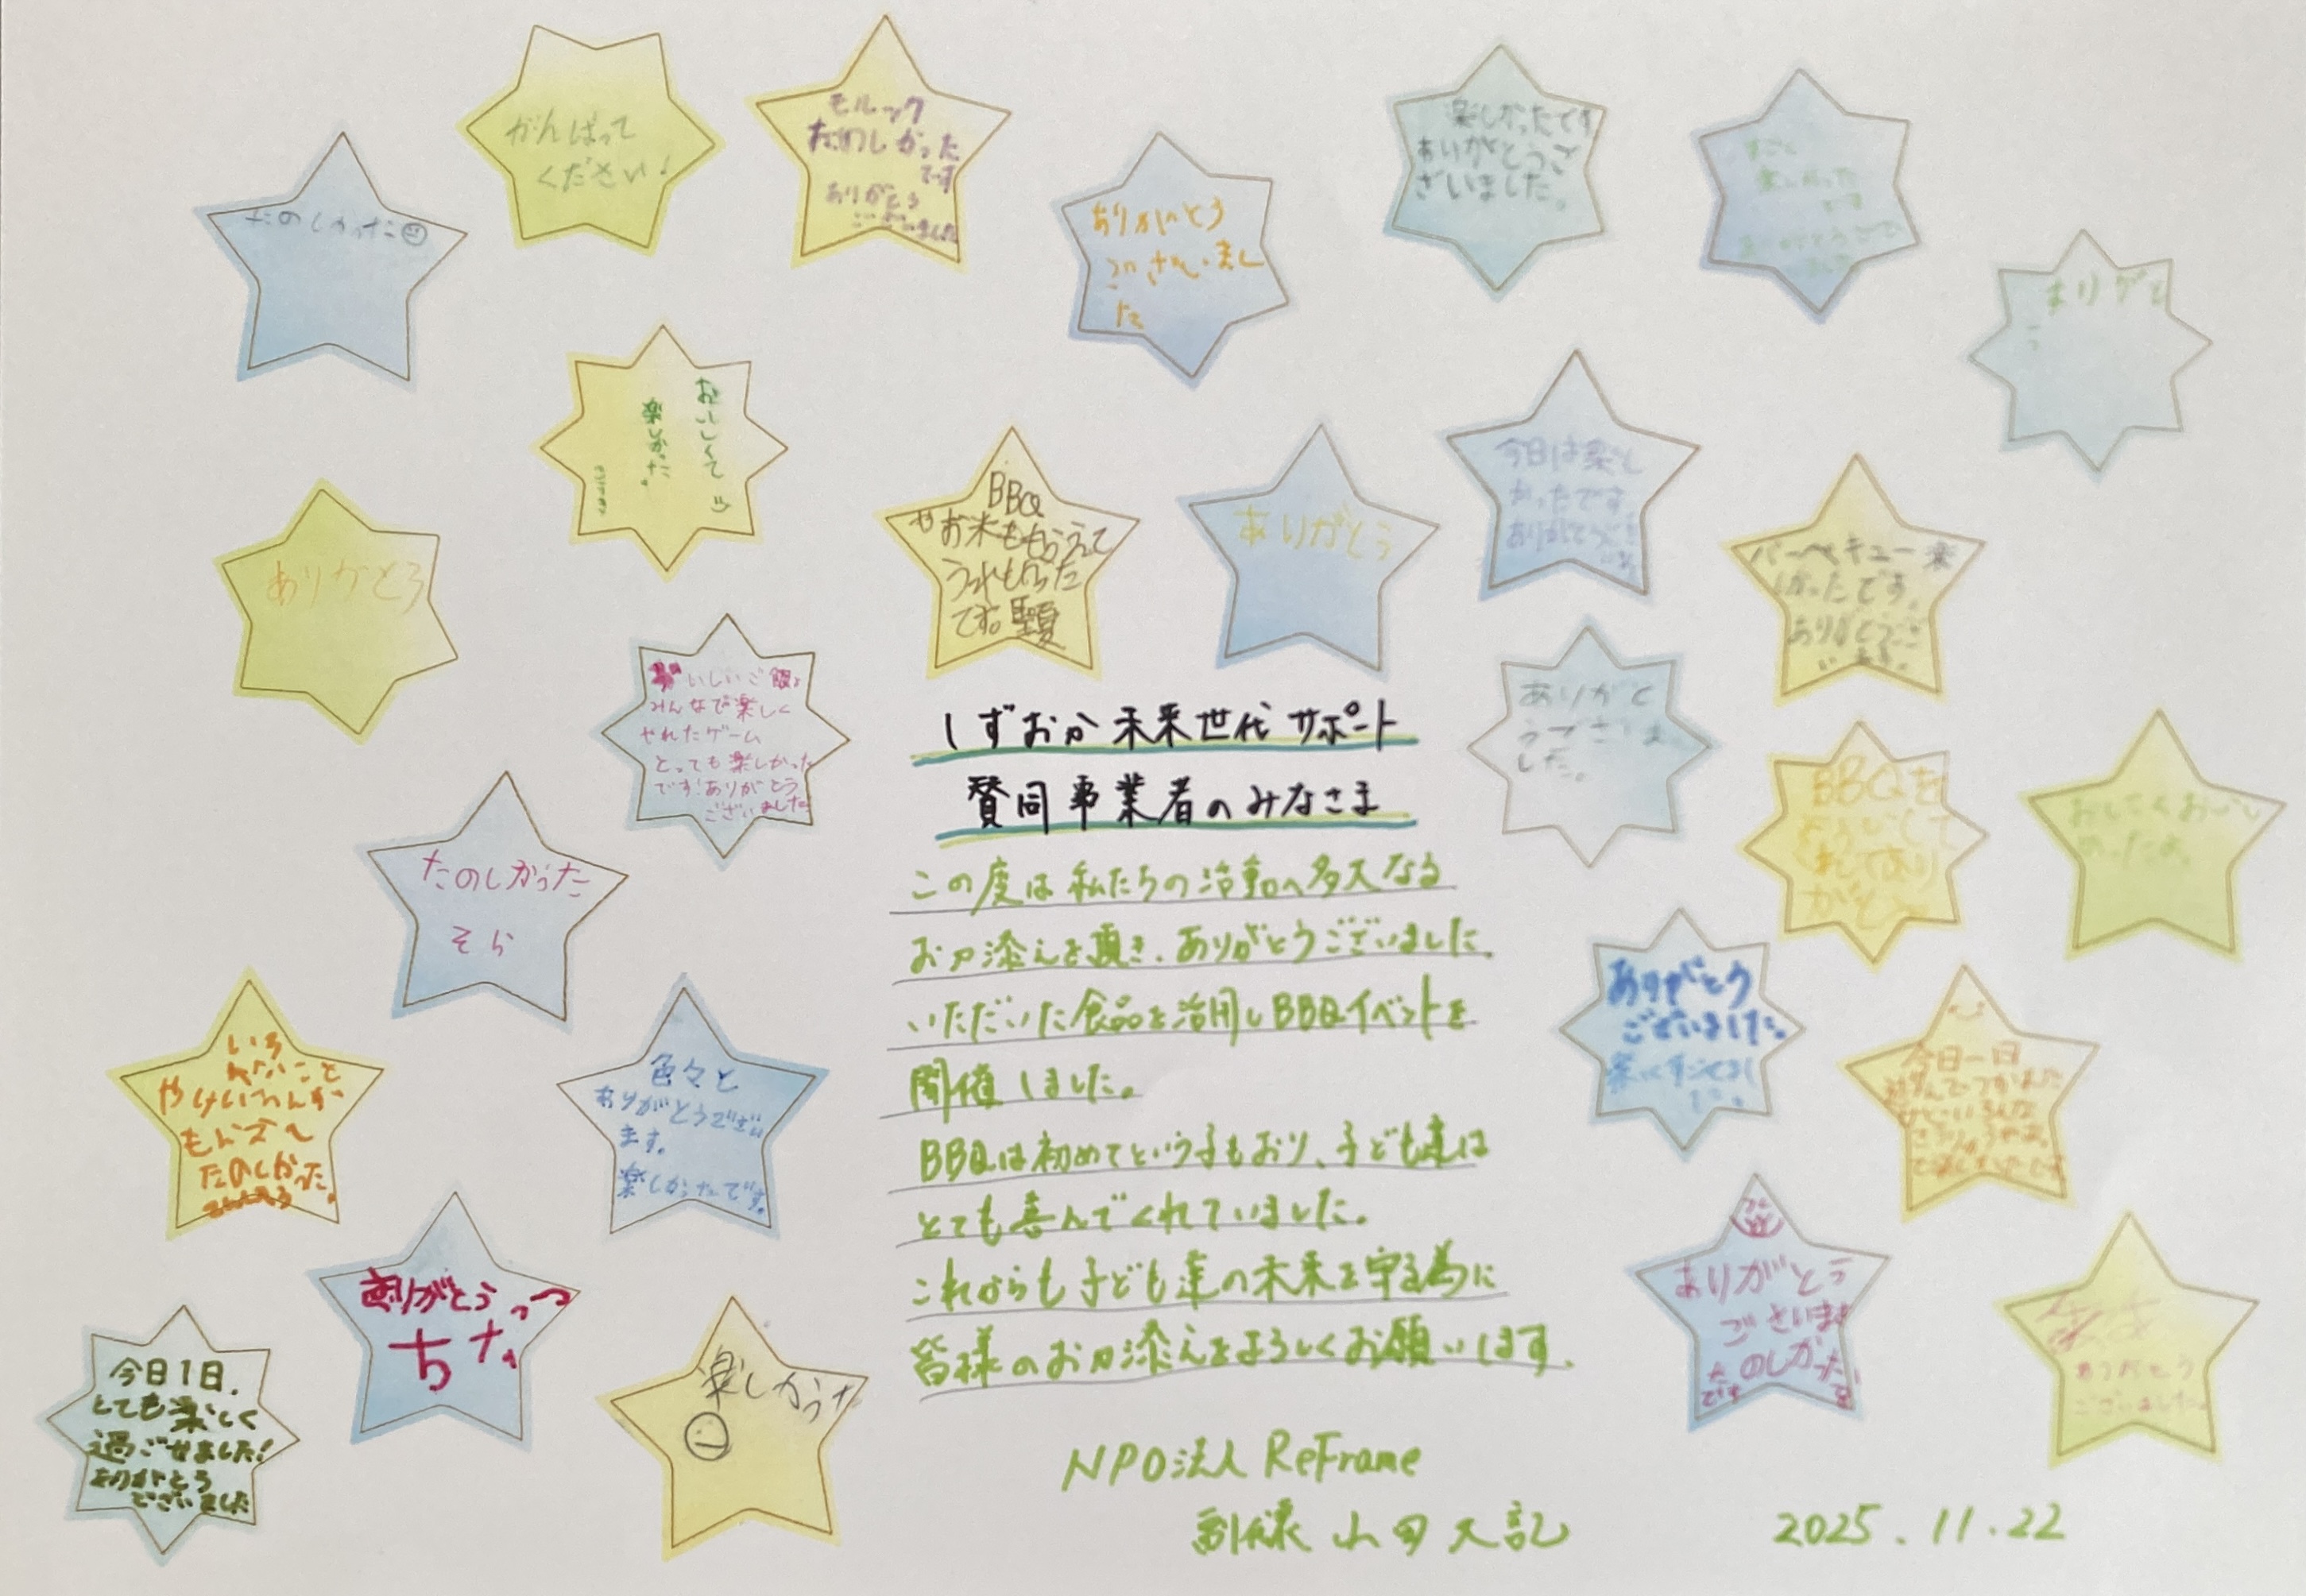 がんばって
ください!
モルック
たのしかった
です
ありがとう
ございました
たのしかった
ありがとう
ございまし
た
楽しかったです
ありがとうご
ざいました。
すごく
楽しかった
です
ありがと
う
おいしくて
楽しかった。
ありがとう
BBQ
やお米ももらえて
うれしかった
です。
ありがとう
今日は楽し
かったです。
ありがとうござ
バーベキュー楽
しかったです。
ありがとうござ
います。
おいしいご飯と
みんなで楽しく
やれたゲーム
とっても楽しかった
です!ありがとう
ございました
ありがと
うございま
した。
たのしかった
そら
しずおか未来世代サポート
賛同事業者のみなさま
この度は私たちの活動へ多大なる
お力添えを頂き、ありがとうございました。
いただいた食品を活用しBBQイベントを
開催しました。
BBQは初めてという子もおり、子ども達は
とても喜んでくれていました。
これからも子ども達の未来を守る為に
皆様のお力添えをよろしくお願いします。
NPO法人 ReFrame
山田大記
2025.11.22
BBQを
ありがとう
ございました。
今日一日
たのしかった。
色々と
ありがとうござい
ます。
楽しかったです。
ありがとうっっ
ちな
今日1日、
とても楽しく
過ごせました!
ありがとう
ございました
楽しかった
ありがとう
ございます
たのしかった
です
ありがとう
ございました。